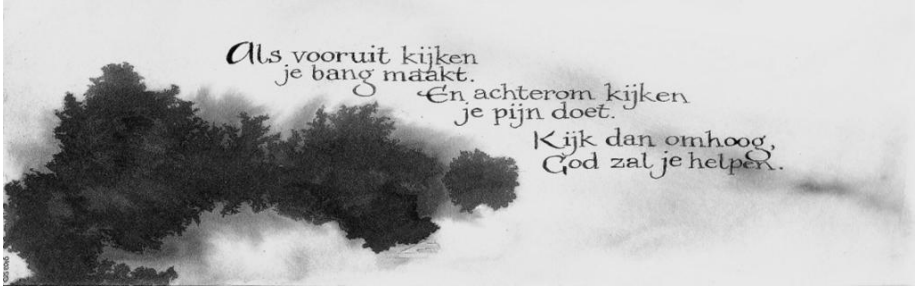 Als vooruit kijken
je bang maakt.
En achterom kijken
je pijn doet.
Kijk dan omhoog,
God zal je helpen.